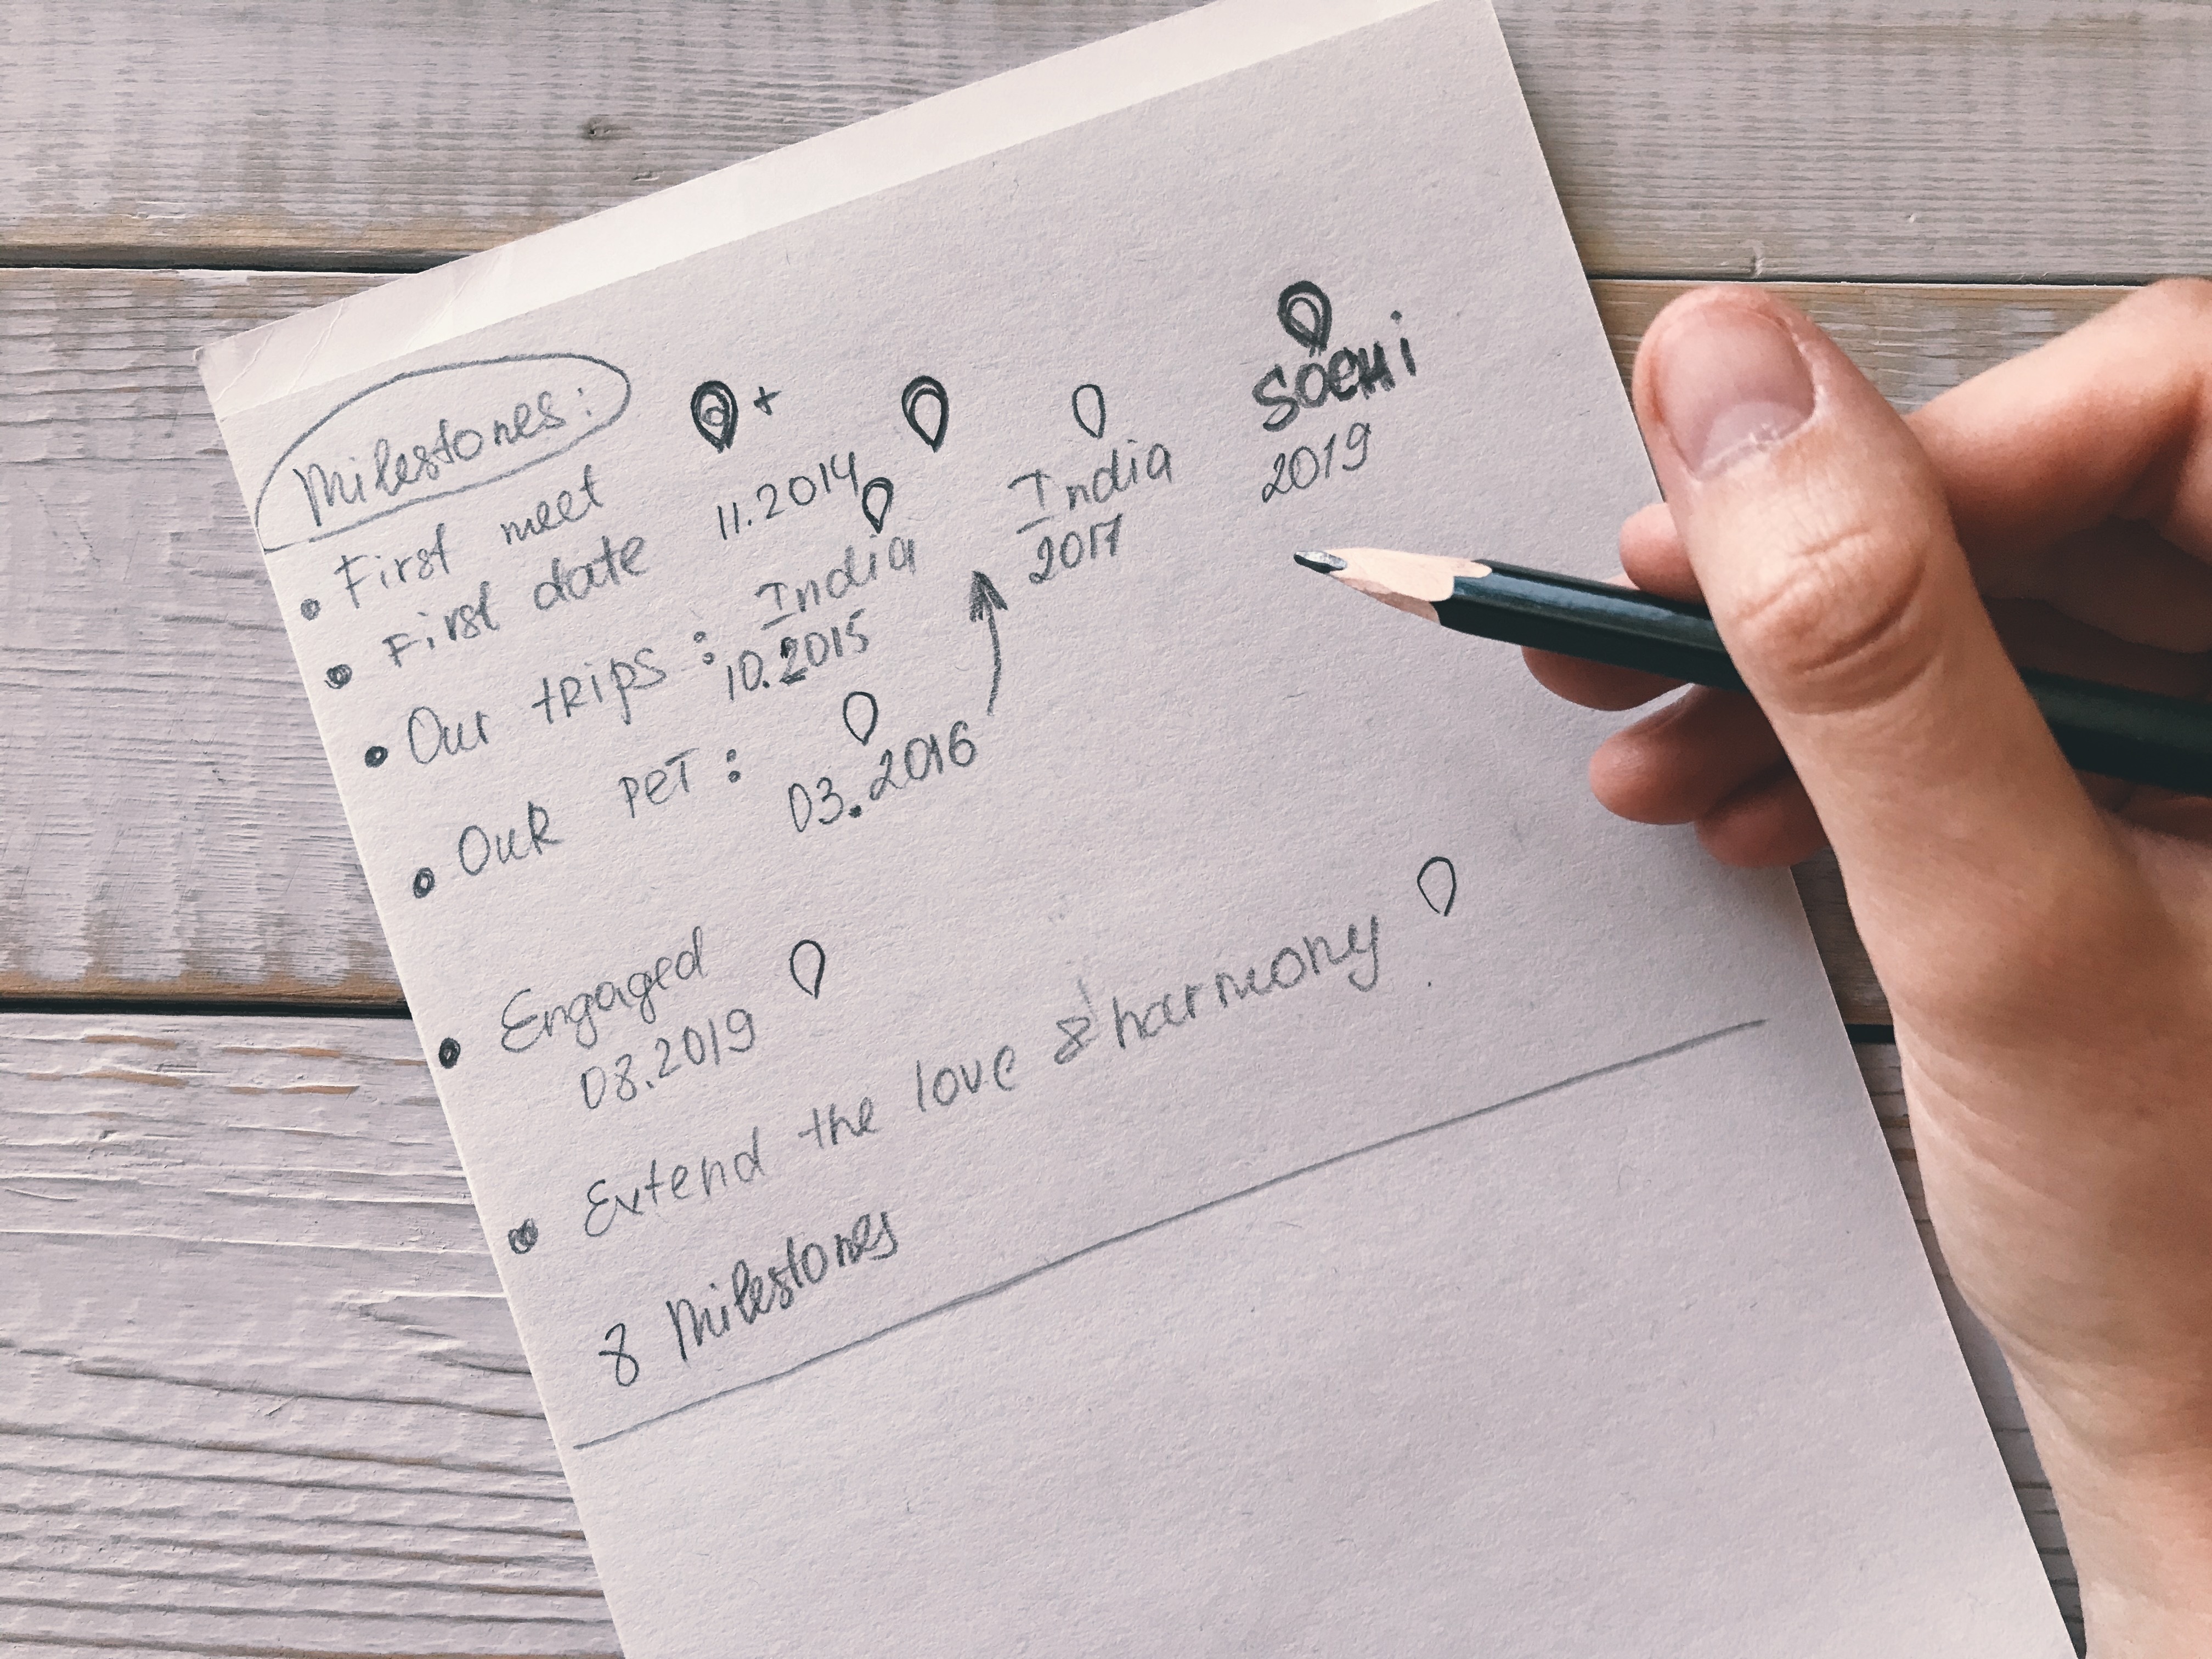 Milestones:
First meet
First date 11.2014
Our trips: India 10.2015 India 2017 Sochi 2019
Our pet: 03.2016
Engaged
08.2019
Extend the love & harmony
8 Milestones